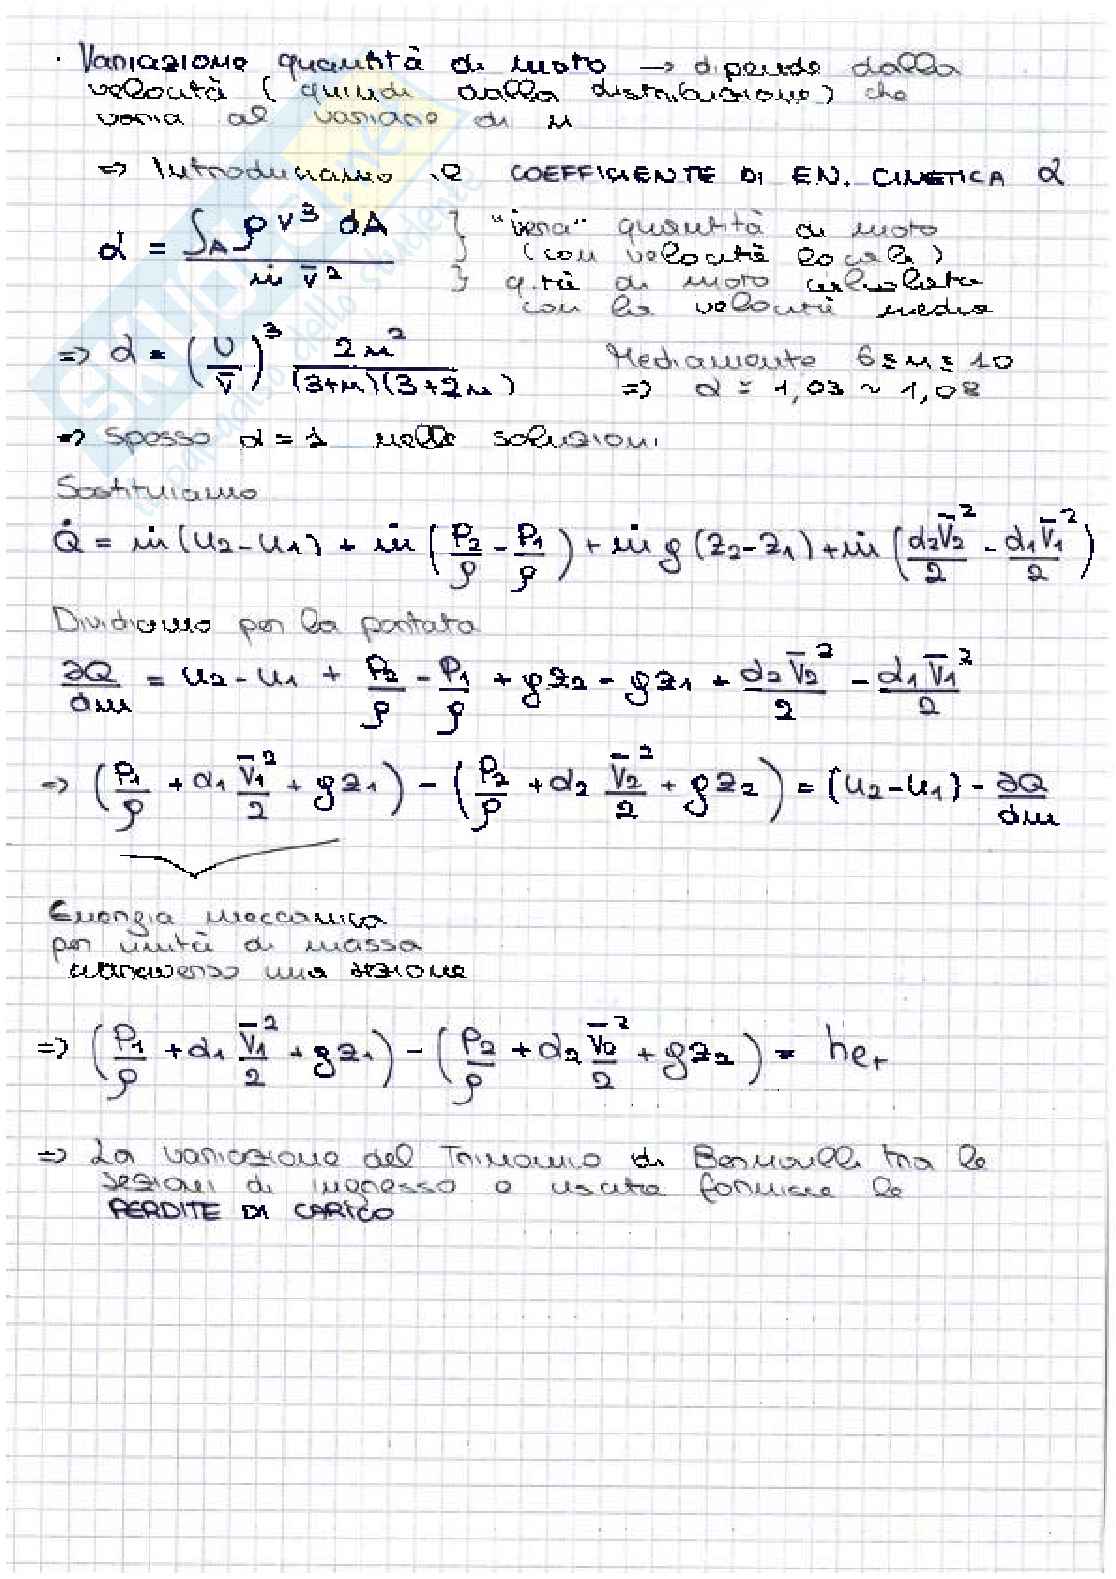 · Variazione quantità di moto → dipende dalla
velocità (quindi dalla distribuzione) che
varia al variare di n
⇒ Introduciamo il COEFFICIENTE DI EN. CINETICA α
α = ∫_A ρ V³ dA / ṁ V̄² } "vera" quantità di moto (con velocità locale) } q.tà di moto calcolata con la velocità media
⇒ α = (U/V̄)³ 2n²/((3+n)(3+2n)) Mediamente 6 ≤ n ≤ 10
⇒ α = 1,03 ~ 1,08
⇒ Spesso α = 1 nelle soluzioni
Sostituiamo
Q̇ = ṁ(u₂-u₁) + ṁ(P₂/ρ - P₁/ρ) + ṁg(z₂-z₁) + ṁ(α₂V̄₂²/2 - α₁V̄₁²/2)
Dividiamo per la portata
∂Q/dm = u₂ - u₁ + P₂/ρ - P₁/ρ + gz₂ - gz₁ + α₂V̄₂²/2 - α₁V̄₁²/2
⇒ (P₁/ρ + α₁ V̄₁²/2 + gz₁) - (P₂/ρ + α₂ V̄₂²/2 + gz₂) = (u₂-u₁) - ∂Q/dm
Energia meccanica
per unità di massa
attraverso una sezione
⇒ (P₁/ρ + α₁ V̄₁²/2 + gz₁) - (P₂/ρ + α₂ V̄₂²/2 + gz₂) = he_r
⇒ La variazione del Trinomio di Bernoulli tra le
sezioni di ingresso e uscita fornisce le
PERDITE DI CARICO
skuola.net
il paradiso dello studente